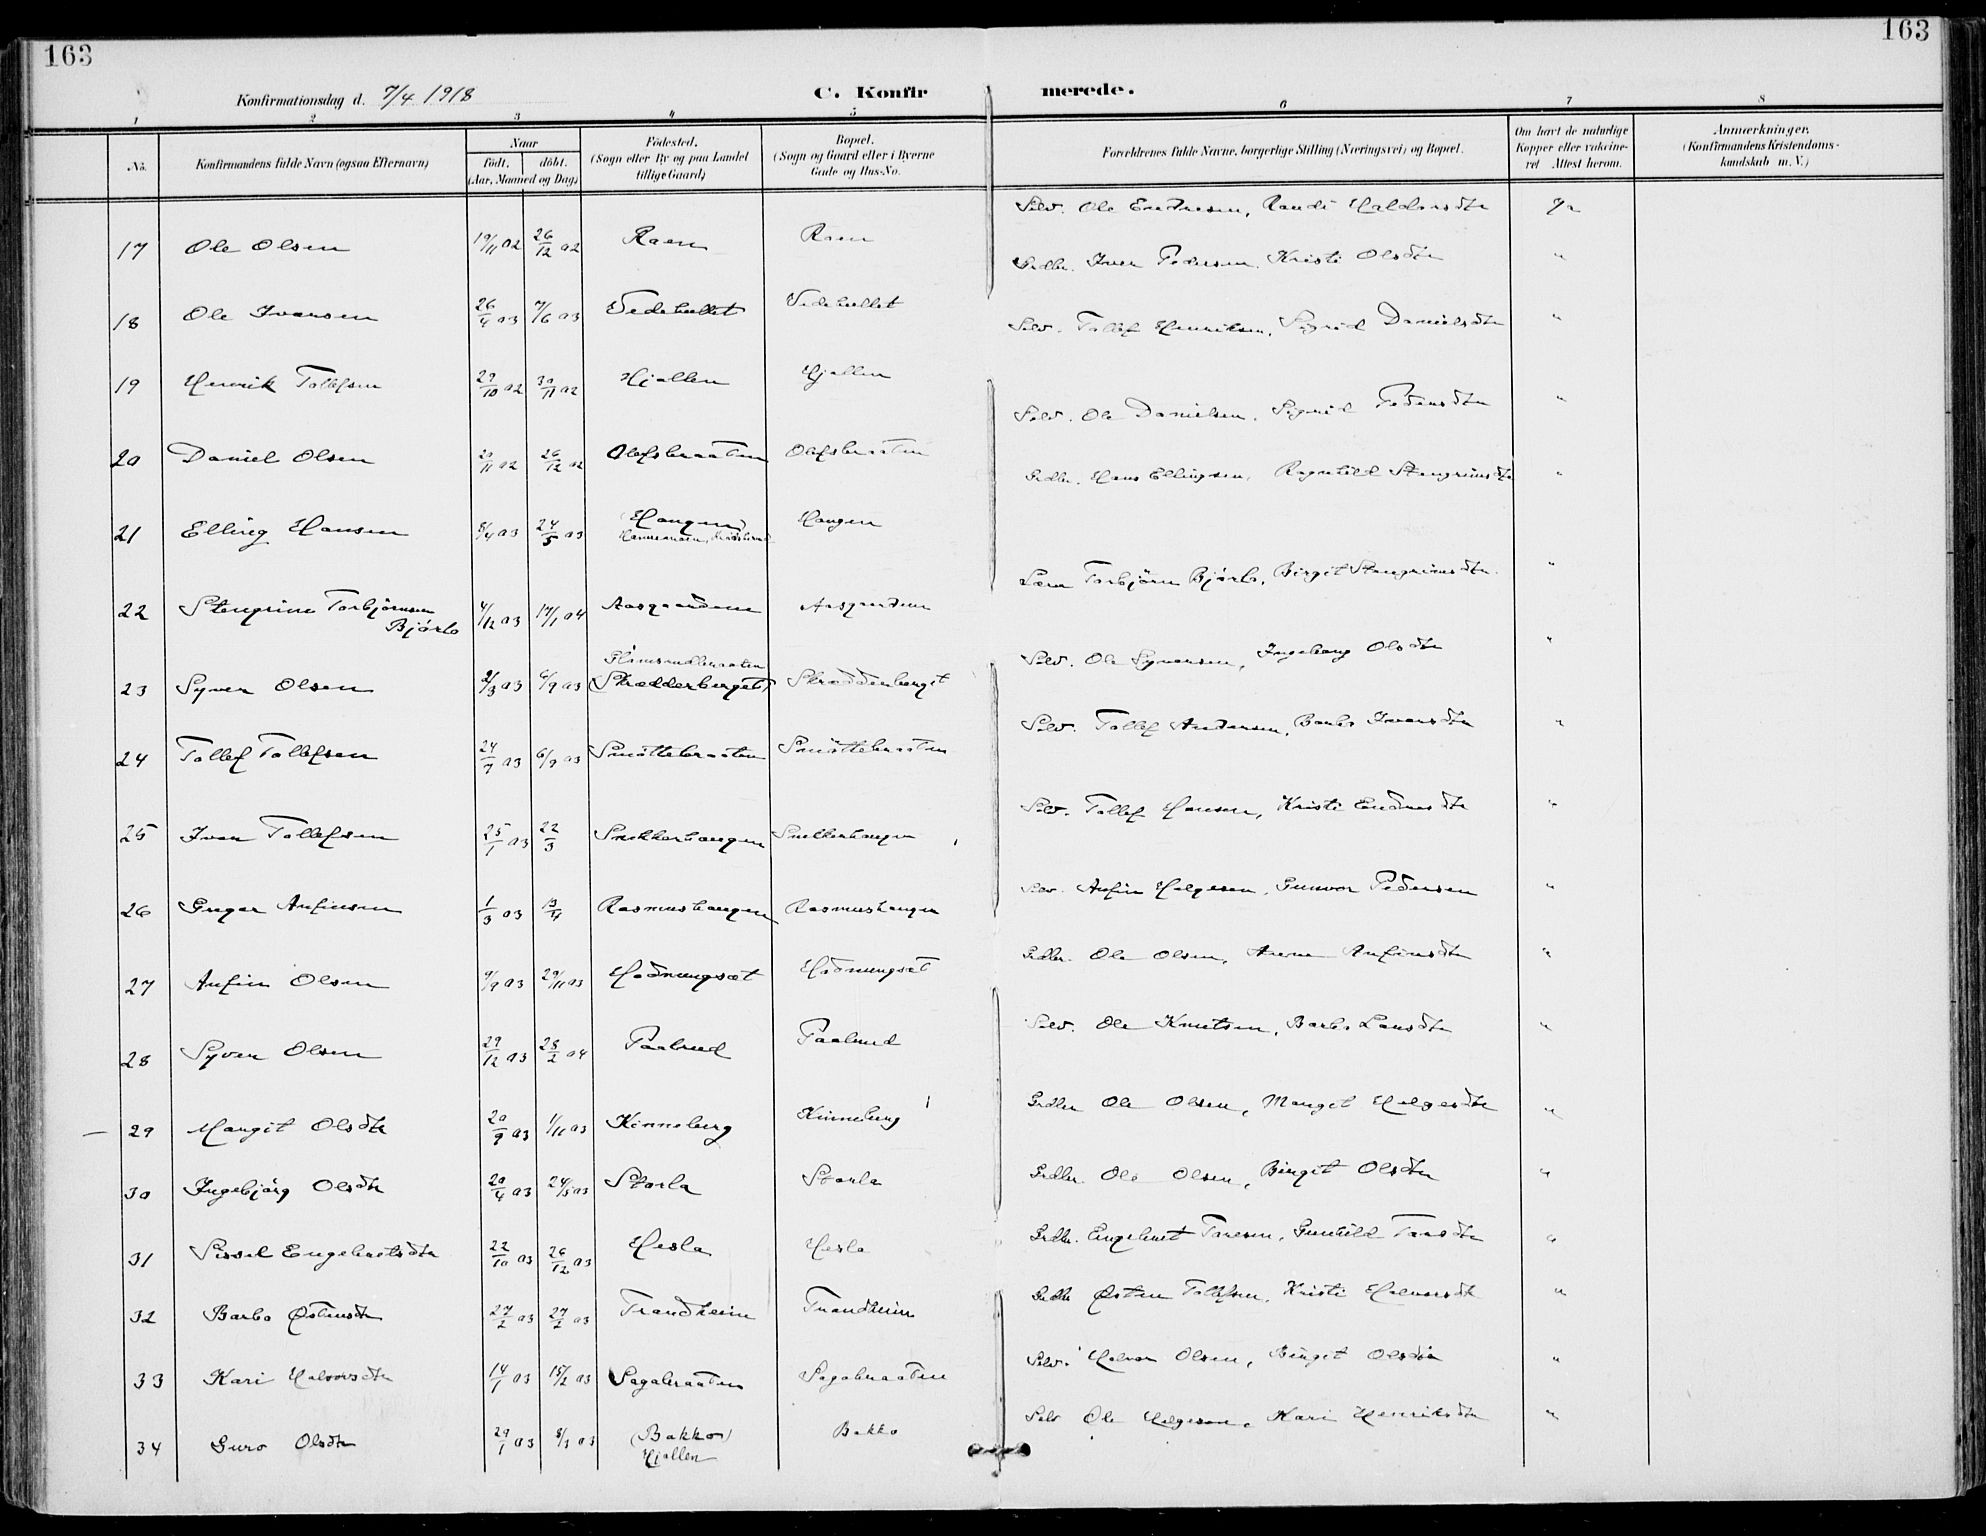 163
163
Konfirmationsdag d. 7/4 1918
C. Konfirmerede.
1 2 3 4 5 6 7 8
No. Konfirmandens fulde Navn (ogsaa Efternavn) Naar födt. döbt. (Aar, Maaned og Dag) Födested. (Sogn eller By og paa Landet tillige Gaard) Bopæl. (Sogn og Gaard eller i Byerne Gade og Hus-No. Forældrenes fulde Navne, borgerlige Stilling (Næringsvei) og Bopæl. Om havt de naturlige Kopper eller vakcineret Attest herom. Anmærkninger. (Konfirmandens Kristendomskundskab m. V.)
17 Ole Olsen 19/11 02 26/12 02 Raen Raen Selv. Ole Endresen, Randi Haldorsdtr Ja
18 Ole Iversen 26/4 03 7/6 03 Vedehullet Vedehullet Grdbr. Iver Pedersen, Kristi Olsdtr "
19 Henrik Tollefsen 29/10 02 30/11 02 Hjallen Hjallen Selv. Tollef Henriksen, Sigrid Danielsdtr "
20 Daniel Olsen 20/11 02 26/12 02 Olefsbraaten Olefsbraaten Selv. Ole Danielsen, Sigrid Pedersdtr "
21 Elling Hansen 8/4 03 24/5 03 (Haugen) Haugen Grdbr. Hans Ellingsen, Ragnhild Stengrimsdtr "
22 Stengrim Torbjørnsen Bjørbo 4/12 03 17/1 04 Aasgaardene Aasgaardene Lærer Torbjørn Bjørbo, Birgit Stengrimsdtr "
23 Syver Olsen 2/3 03 6/9 03 (Skradderberget) Skradderberget Selv. Ole Syversen, Ingeborg Olsdtr "
24 Tollef Tollefsen 24/7 03 6/9 03 Smøttebraaten Smøttebraaten Selv. Tollef Andersen, Barbo Iversdtr "
25 Iver Tollefsen 25/1 03 22/3 Snekkerhaugen Snekkerhaugen Selv. Tollef Hansen, Kristi Endresdtr "
26 Greger Anfinsen 1/3 03 13/4 Rasmushaugen Rasmushaugen Selv. Anfin Helgesen, Gunvor Pedersen "
27 Anfin Olsen 9/9 03 29/11 03 Hodnungsæt Hodnungsæt Grdbr. Ole Olsen, Anfinsdtr "
28 Syver Olsen 29/12 03 28/2 04 Paalrud Paalrud Selv. Ole Knutsen, Barbo Larsdtr "
29 Margit Olsdtr 20/9 03 1/11 03 Kinneberg Kinneberg Grdbr Ole Olsen, Margit Helgesdtr "
30 Ingebjørg Olsdtr 20/4 03 24/5 03 Storla Storla Grdbr. Ole Olsen, Birgit Olsdtr "
31 Sissel Engebretsdtr 22/10 03 26/12 03 Hesla Hesla Grdbr. Engebret Toresen, Gunhild Toresdtr "
32 Barbo Østensdtr 27/2 03 Trondheim Trondheim Grdbr Østen Tollefsen, Kristi Halvorsdtr "
33 Kari Halvorsdtr 14/1 03 15/2 03 Sagabraaten Sagabraaten Selv. Halvor Olsen, Birgit Olsdtr "
34 Guro Olsdtr 29/1 03 8/3 03 (Bakko) Hjallen Bakko Selv Ole Helgesen, Kari Henriksdtr "